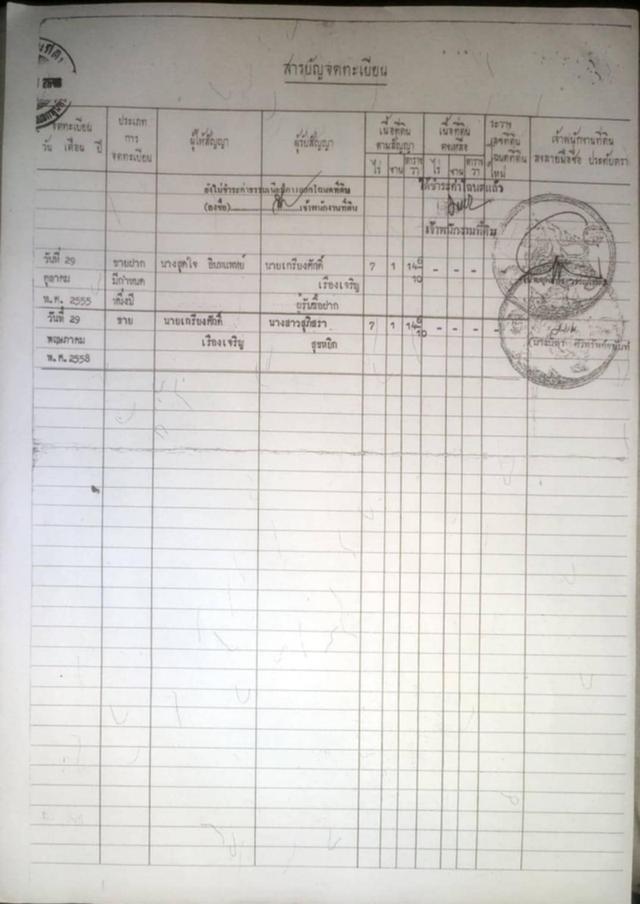 สารบัญจดทะเบียน
จดทะเบียน
วัน เดือน ปี
ประเภท
การ
จดทะเบียน
ผู้ให้สัญญา
ผู้รับสัญญา
เนื้อที่ดิน
ตามสัญญา
ไร่ งาน ตาราง วา
เนื้อที่ดิน
คงเหลือ
ไร่ งาน ตาราง วา
ระวาง
เลขที่ดิน
โฉนดที่ดิน
ใหม่
เจ้าพนักงานที่ดิน
ลงลายมือชื่อ ประทับตรา
ยังไม่ชำระค่าธรรมเนียมการออกโฉนดที่ดิน
(ลงชื่อ) เจ้าพนักงานที่ดิน
ได้ชำระค่าโฉนดแล้ว
เจ้าพนักงานที่ดิน
วันที่ 29 ขายฝาก นางสุดใจ อินทแพทย์ นายเกรียงศักดิ์ 7 1 14 6/10 - - - -
ตุลาคม มีกำหนด เรืองเจริญ
พ.ศ. 2555 หนึ่งปี ผู้รับซื้อฝาก
วันที่ 29 ขาย นายเกรียงศักดิ์ นางสาวสุภัสรา 7 1 14 6/10 - - - -
พฤษภาคม เรืองเจริญ สุขหยิก
พ.ศ. 2558